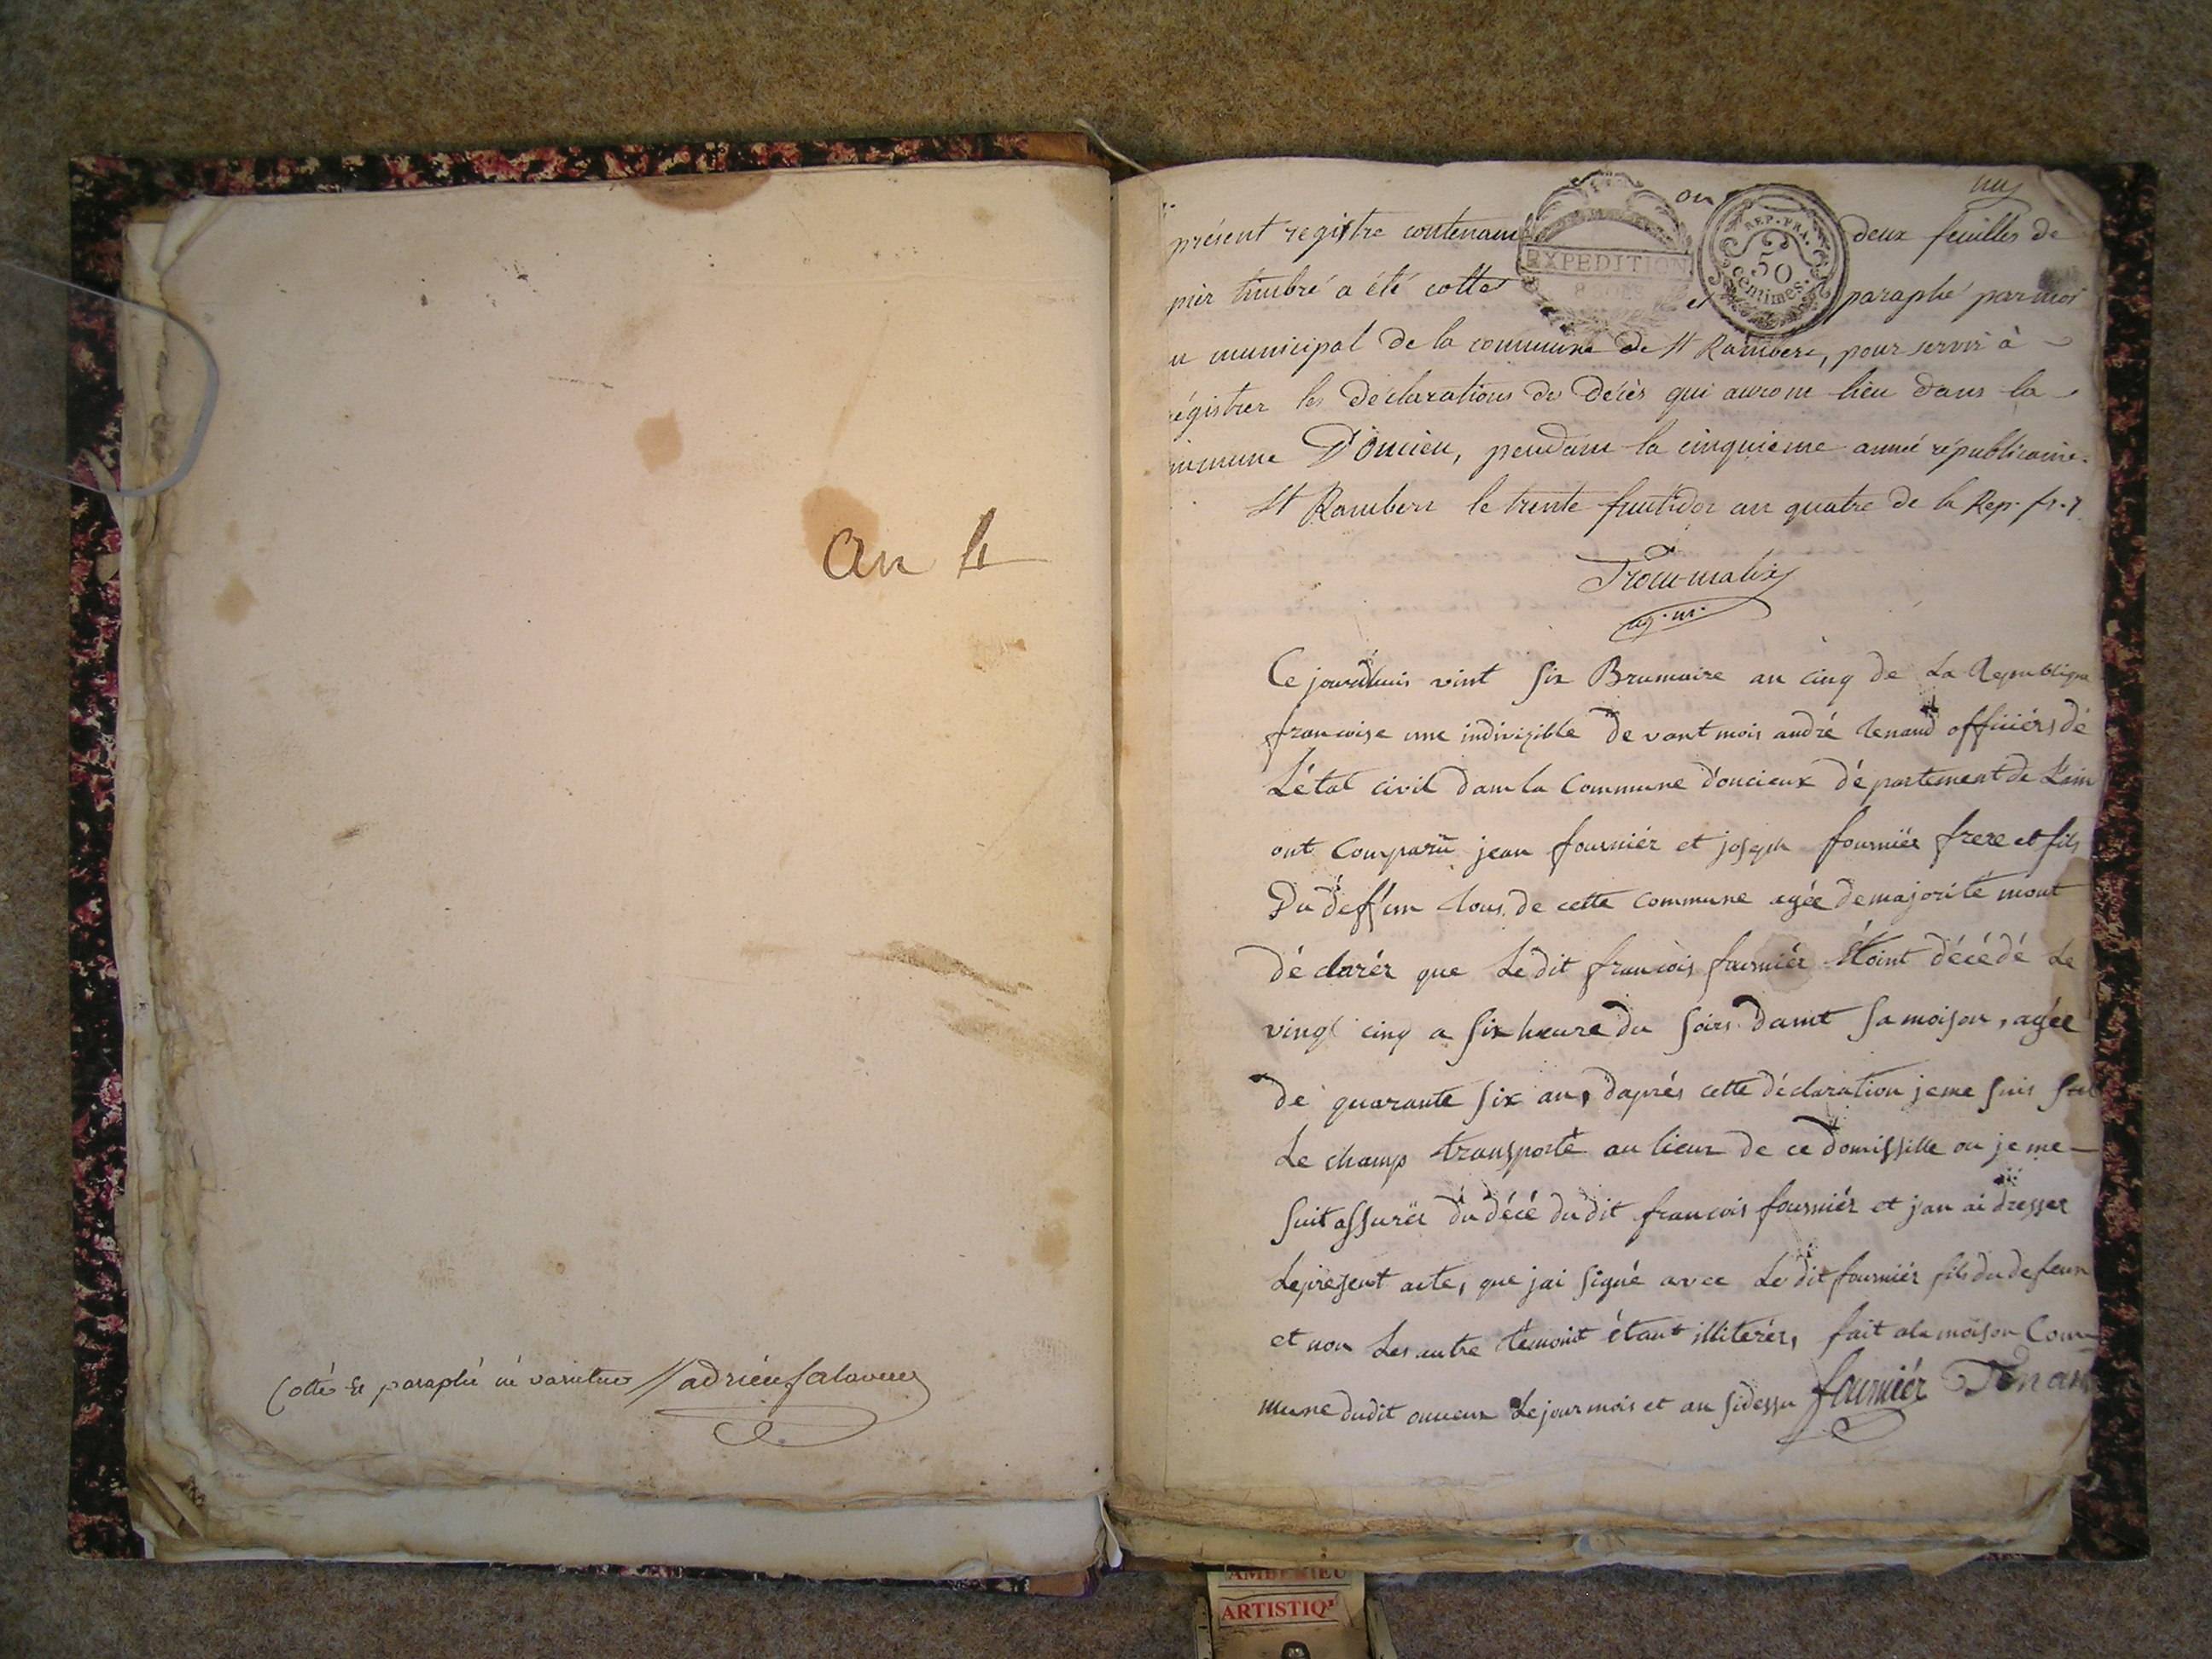 an 4
Cotté et paraphé
présent registre contenant deux feuilles de
pier timbré a été cotté et paraphé par moi
municipal de la commune de St Rambert, pour servir à
égistrer les déclarations de décès qui auront lieu dans la
mmune D'oncieu, pendant la cinquieme année républicaine.
St Rambert le trente fructidor an quatre de la Rep. fr.
EXPEDITION
REP. FRA.
50
centimes.
ag. m.
Ce jourdhuis vint six Brumaire an cinq de La Republique
francoise une indivizible devant mois andré tenand officiérs de
L'état civil dam la Commune d'oncieux département de L'ain
ont Comparü jean fourniér et joseph fourniér frere et fils
Du deffun tous de cette Commune agée de majorité mont
déclarér que Le dit francois fourniér étoint décédé Le
vingt cinq a six heure du soirs dant sa moison, agée
de quarante six an, daprés cette déclaration jeme suis sul
Le champ transporté au lieux de ce domissille ou je me
suit assurér du décé du dit francois fourniér et jan ai dresser
Le present acte, que jai signé avec Le dit fourniér fils du defeun
et non Les autre témoint étant illiterér, fait ala moison Com
mune dudit Le jour mois et an sidessu fourniér Tenan
AMBERIEU
ARTISTIQ'